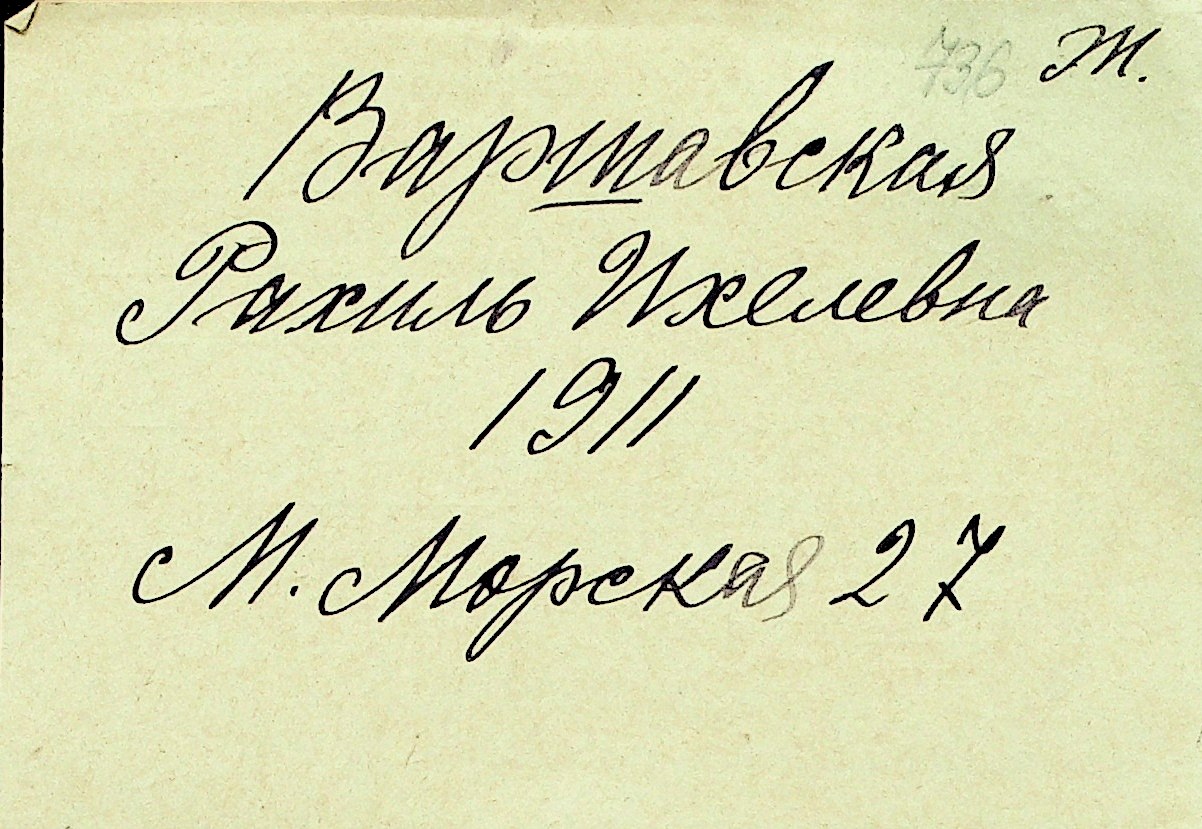 736 Ж.
Варшавская
Рахиль Ихелевна
1911
М. Морская 27